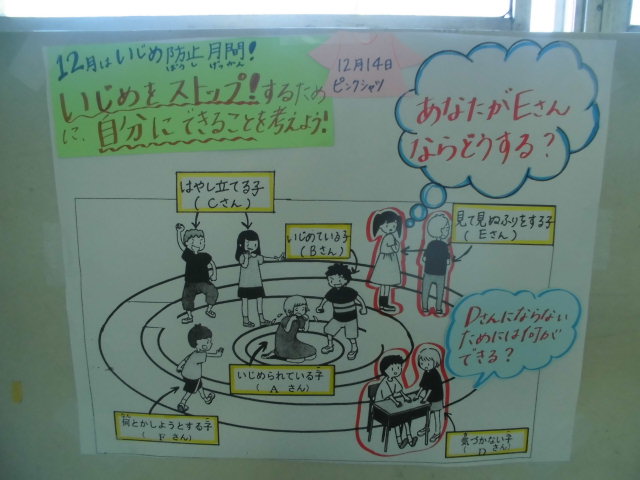 12月はいじめ防止月間!
ぼうし げっかん
いじめをストップ!するため
に、自分にできることを考えよう!
12月14日
ピンクシャツ
あなたがEさん
ならどうする?
はやし立てる子
(Cさん)
いじめている子
(Bさん)
見て見ぬふりをする子
(Eさん)
Dさんにならない
ためには何が
できる?
いじめられている子
(Aさん)
何とかしようとする子
(Fさん)
気づかない子
(Dさん)